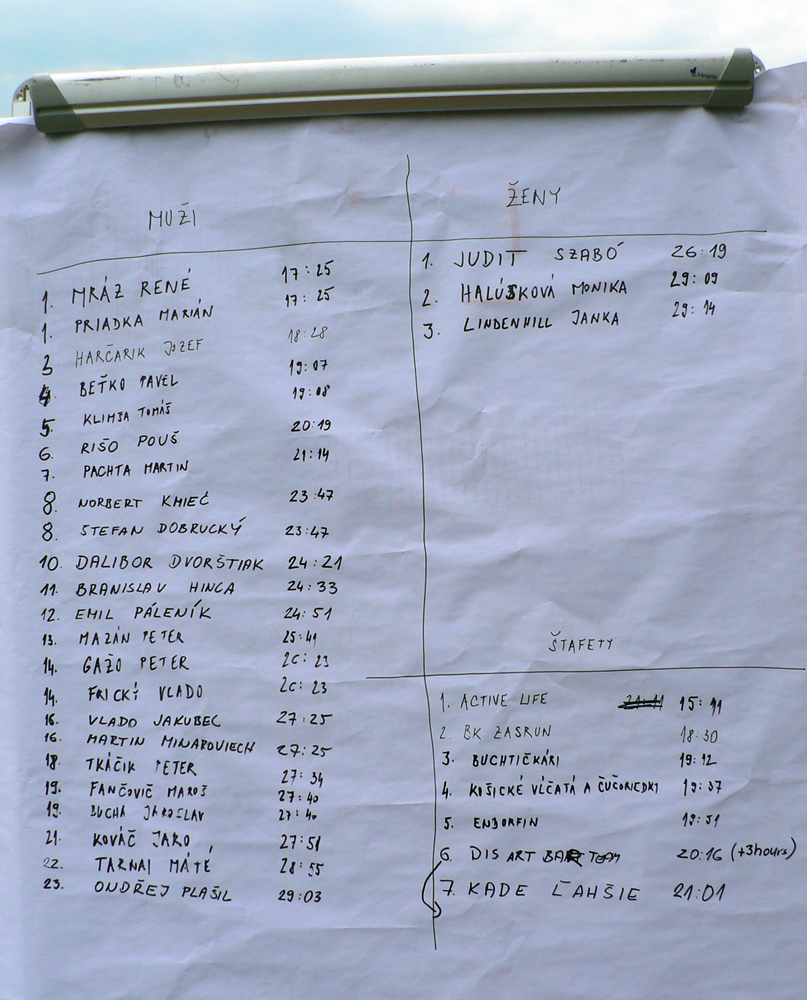 MUŽI
1. MRÁZ RENÉ 17:25
1. PRIADKA MARIÁN 17:25
3 HARČARIK JOZEF 18:28
4. BEŤKO PAVEL 19:07
5. KLIMJA TOMÁŠ 19:08
6. RIŠO POUŠ 20:19
7. PACHTA MARTIN 21:14
8. NORBERT KMIEĆ 23:47
8. STEFAN DOBRUCKÝ 23:47
10. DALIBOR DVORŠTIAK 24:21
11. BRANISLAV HINCA 24:33
12. EMIL PÁLENÍK 24:51
13. MAZÁN PETER 25:41
14. GAŽO PETER 26:23
14. FRICKÝ VLADO 26:23
16. VLADO JAKUBEC 27:25
16. MARTIN MINAROVIECH 27:25
18. TKÁČIK PETER 27:34
19. FANČOVIČ MAROŠ 27:40
19. BUCHA JAROSLAV 27:40
21. KOVÁČ JARO 27:51
22. TARNAI MÁTÉ 28:55
23. ONDŘEJ PLAŠIL 29:03
ŽENY
1. JUDIT SZABÓ 26:19
2. HALÚSKOVÁ MONIKA 29:09
3. LINDENHILL JANKA 29:14
ŠTAFETY
1. ACTIVE LIFE 15:11
2. BK ZASRUN 18:30
3. BUCHTIČKÁRI 19:12
4. KOŠICKÉ VĹČATÁ A ČUČORIEDKY 19:37
5. ENDORFIN 19:51
6. DIS ART BAR TEAM 20:16 (+3hours)
7. KADE ĽAHŠIE 21:01